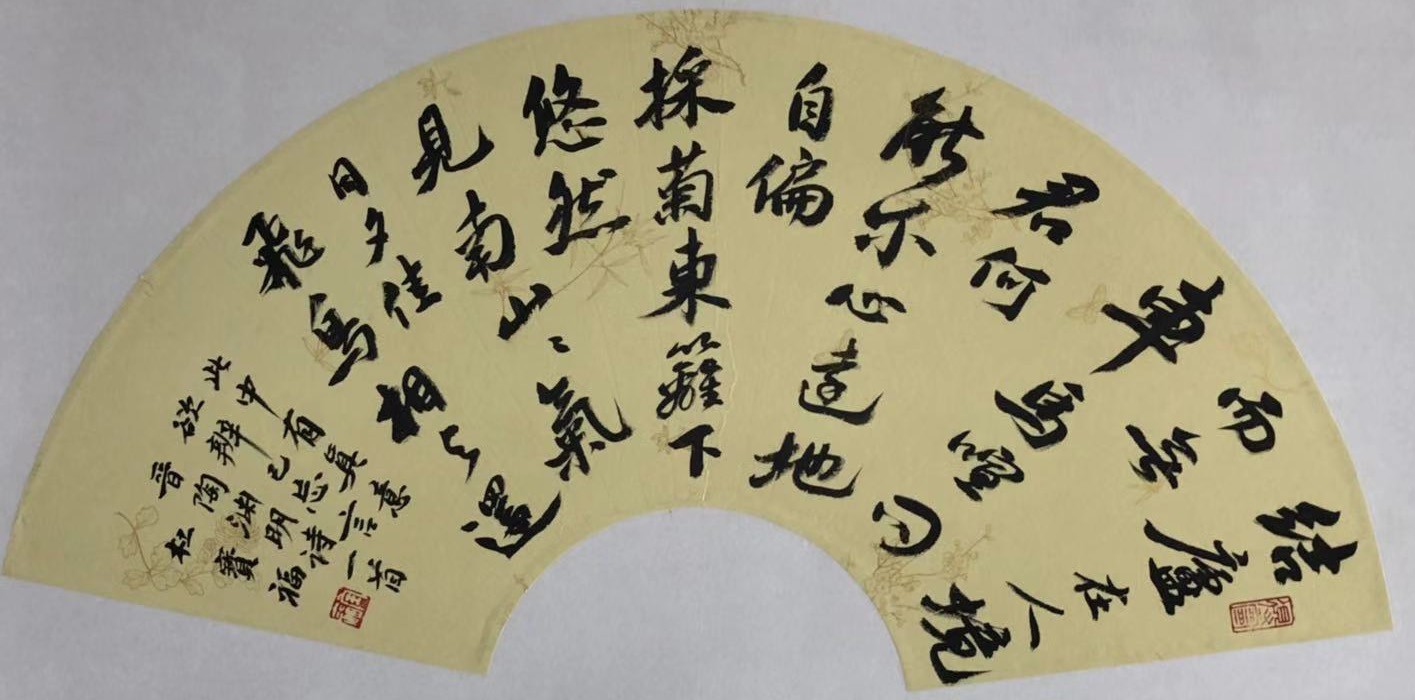 結廬在人境
而無
車馬喧问
君何
能尔心遠地
自偏
採菊東籬下
悠然
見南山〻氣
日夕佳
飛鳥相与還
此中有真意
欲辨已忘言
晉陶淵明詩一首
杜寶福